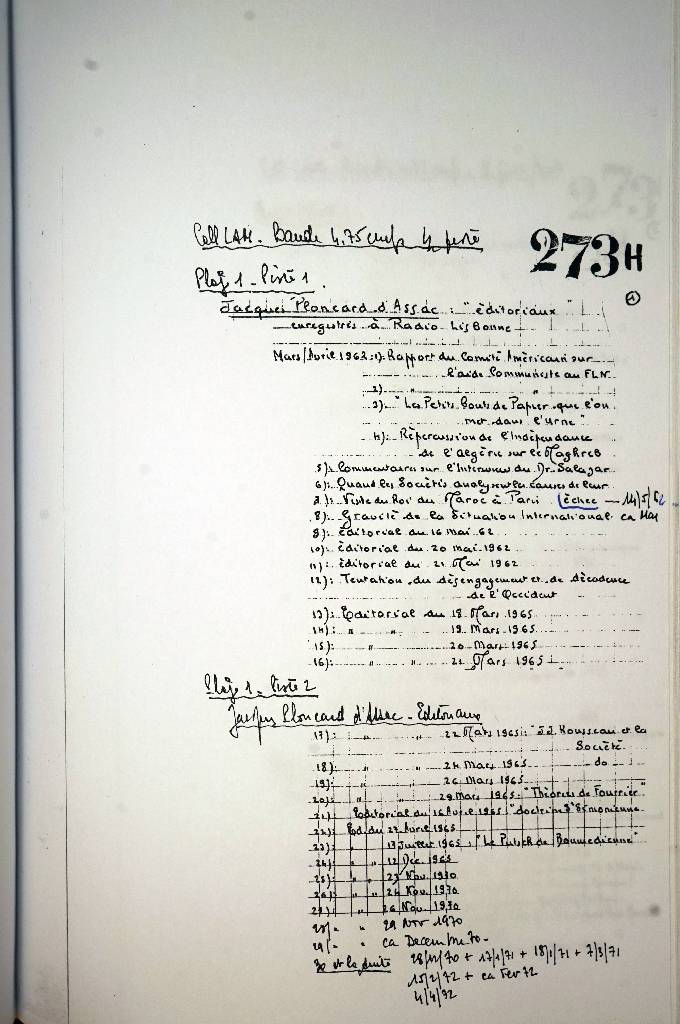 Coll LAM. Bande 4,75 cm/s 4 piste
273H
Plage 1 - Piste 1.
1
Jacques Ploncard d'Assac : "éditoriaux"
enregistrés à Radio Lisbonne
Mars/Avril 1962: 1): Rapport du Comité Américain sur
l'aide Communiste au FLN.
2) " "
3): "Les Petits bouts de Papier que l'on
met dans l'Urne"
4): Répercussion de l'Indépendance
de l'algérie sur le Maghreb
5): Commentaires sur l'Interview du Dr. Salazar
6): Quand les Sociétés analysent les causes de leur
7): Visite du Roi du Maroc à Paris échec — 14/5/62
8): Gravité de la Situation International ca Mai
9): éditorial du 16 mai 62
10): éditorial du 20 mai 1962
11): éditorial du 21 Mai 1962
12): Tentation du désengagement et de décadence
de l'Occident
13): Editorial du 18 Mars 1965
14): " " 19 Mars 1965
15): " 20 Mars 1965
16): " 21 Mars 1965
Plage 1 - Piste 2
Jacques Ploncard d'Assac - Editoriaux
17): " " 22 Mars 1965: "JJ Rousseau et la
Société
18): " " 24 Mars 1965 — do —
19): " " 26 Mars 1965
20): " " 29 Mars 1965: "Théories de Fourrier"
21) Editorial du 16 Avril 1965 "doctrine
22): Ed. du 27 Avril 1965
23): " 13 Juillet 1965: "Le Putsch de Boumedienne"
24): " " 12 Déc 1965
25): " " 23 Nov. 1970
26): " " 24 Nov. 1970
27): " " 26 Nov. 1970
28/- " 29 Nov 1970
29/- " ca Decembre 70 -
30 et la suite 28/12/70 + 17/1/71 + 18/1/71 + 7/3/71
15/2/72 + ca Fev 72
4/4/92